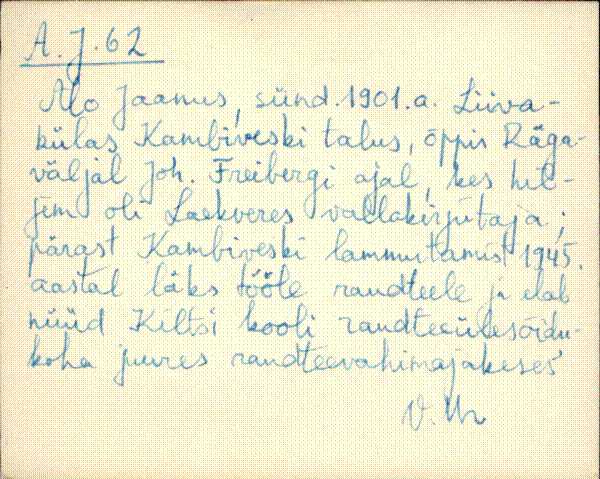 A. J. 62
Alo Jaanus, sünd. 1901. a. Liiva-
külas Kambiveski talus, õppis Räga-
väljal Joh. Freibergi ajal, kes hil-
jem oli Laekveres vallakirjutaja;
pärast Kambiveski lammutamist 1945.
aastal läks tööle raudteele ja elab
nüüd Kiltsi kooli raudteeülesõidu-
koha juures raudteevahimajakeses